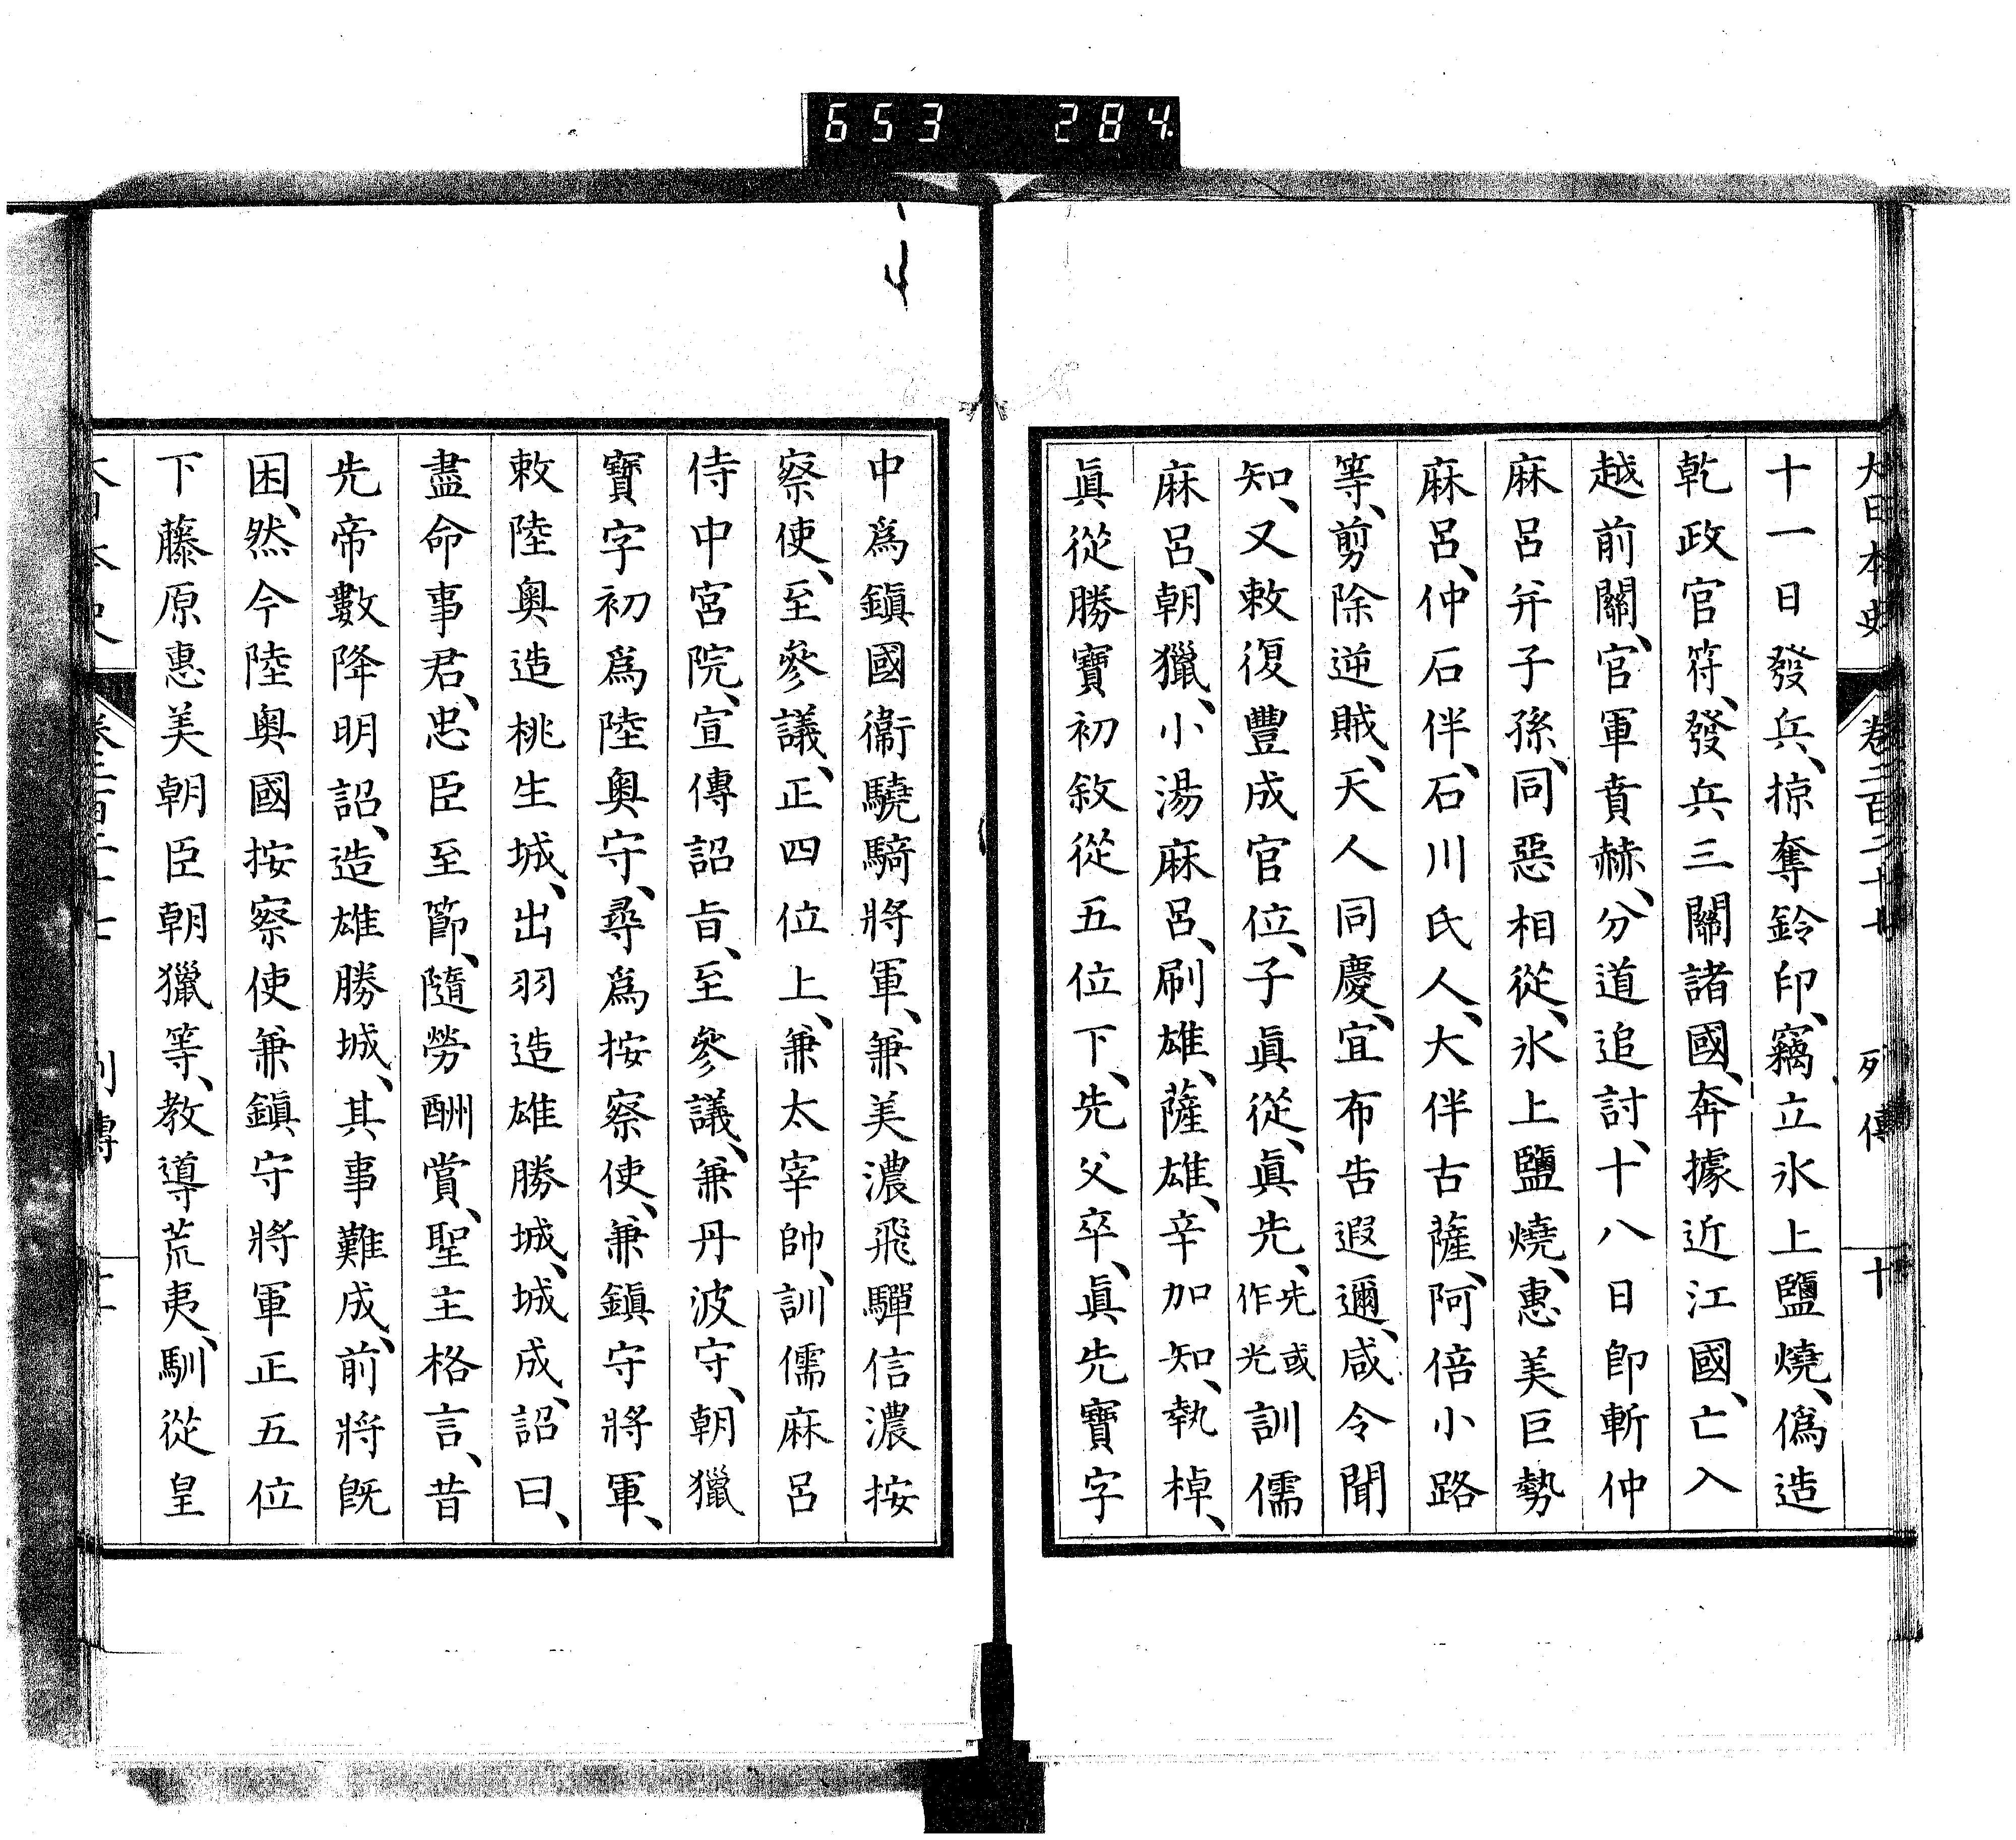 653 284
大日本史 卷二百二十七 列傳 十
十一日發兵、掠奪鈴印、竊立氷上鹽燒、僞造
乾政官符、發兵三關諸國、奔據近江國、亡入
越前關、官軍賁赫、分道追討、十八日卽斬仲
麻呂幷子孫、同惡相從、氷上鹽燒、惠美巨勢
麻呂、仲石伴、石川氏人、大伴古薩、阿倍小路
等、剪除逆賊、天人同慶、宜布告遐邇、咸令聞
知、又敕復豐成官位、子眞從、眞先、先或作光訓儒
麻呂、朝獵、小湯麻呂、刷雄、薩雄、辛加知、執棹、
眞從勝寶初敘從五位下、先父卒、眞先寶字
中爲鎭國衞驍騎將軍、兼美濃飛驒信濃按
察使、至參議、正四位上、兼太宰帥、訓儒麻呂
侍中宮院、宣傳詔旨、至參議、兼丹波守、朝獵
寶字初爲陸奧守、尋爲按察使、兼鎭守將軍、
敕陸奧造桃生城、出羽造雄勝城、城成、詔曰、
盡命事君、忠臣至節、隨勞酬賞、聖主格言、昔
先帝數降明詔、造雄勝城、其事難成、前將旣
困、然今陸奧國按察使兼鎭守將軍正五位
下藤原惠美朝臣朝獵等、教導荒夷、馴從皇